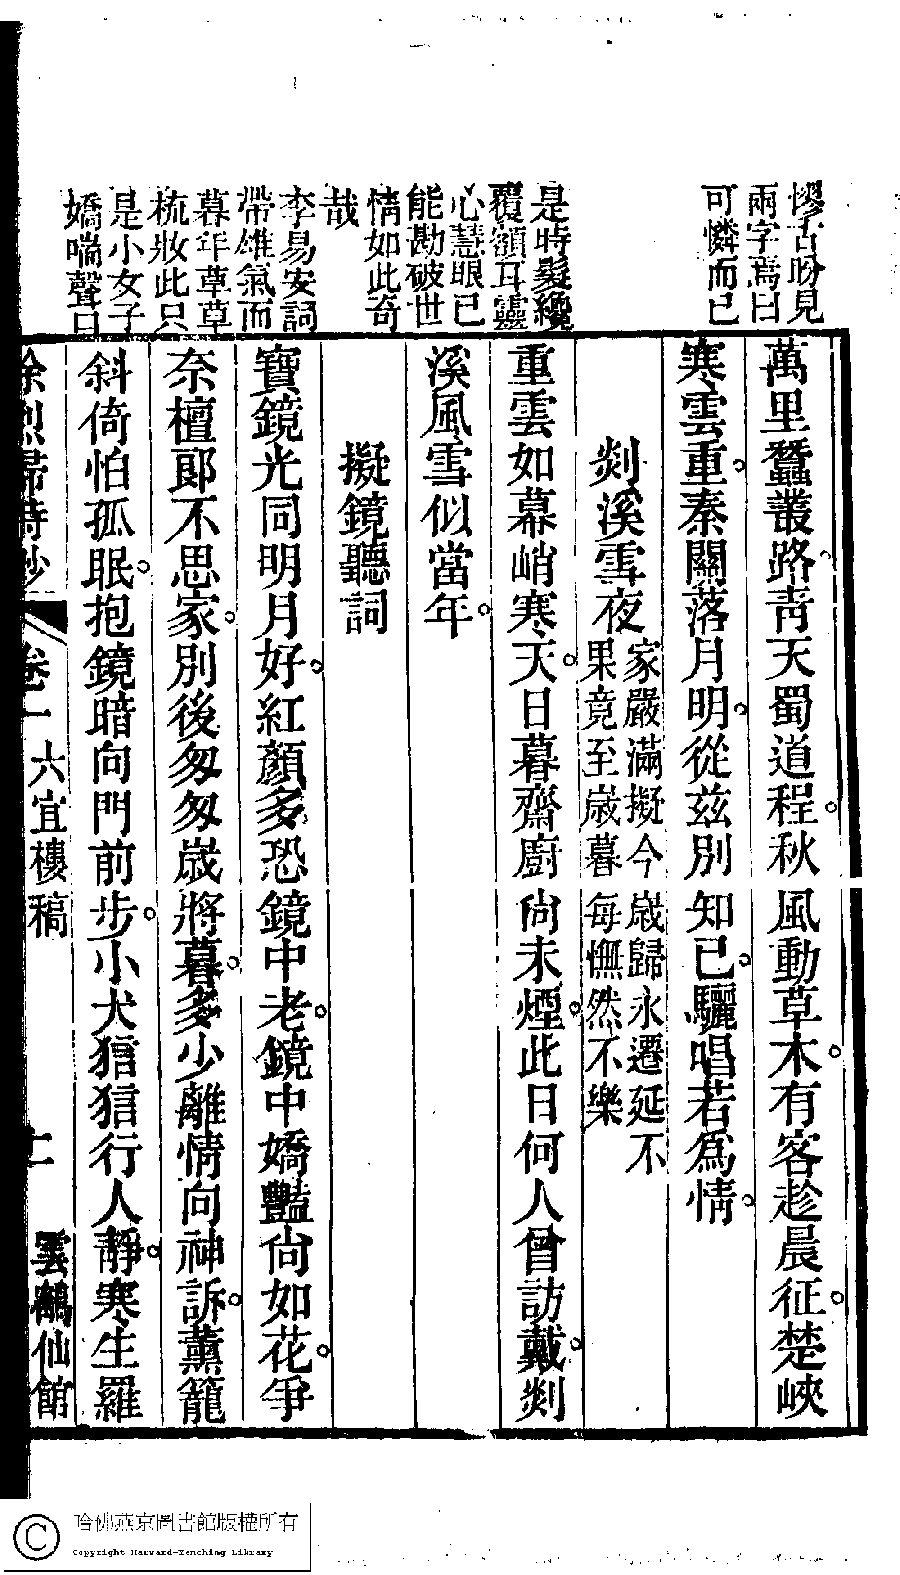 惨古盼見
兩字焉曰
可憐而已
是時髮纔
覆額耳靈
心慧眼已
能勘破世
情如此奇
哉
李易安詞
帶雄氣而
暮年草草
梳妝此只
是小女子
嬌喘聲曰
萬里蠶叢路青天蜀道程秋風動草木有客趁晨征楚峽
寒雲重秦關落月明從玆別知已驪唱若爲情
剡溪雪夜
家嚴滿擬今歲歸永遷延不
果竟至歲暮每憮然不樂
重雲如幕峭寒天日暮齋廚尙未煙此日何人曾訪戴剡
溪風雪似當年
擬鏡聽詞
寶鏡光同明月好紅顏多恐鏡中老鏡中嬌豔尙如花爭
奈檀郞不思家別後匆匆歲將暮多少離情向神訴薰籠
斜倚怕孤眠抱鏡暗向門前步小犬狺狺行人靜寒生羅
徐烈婦詩鈔 卷一 六宜樓稿 二 雲鶴仙館
哈佛燕京圖書館版權所有
Copyright Harvard-Yenching Library